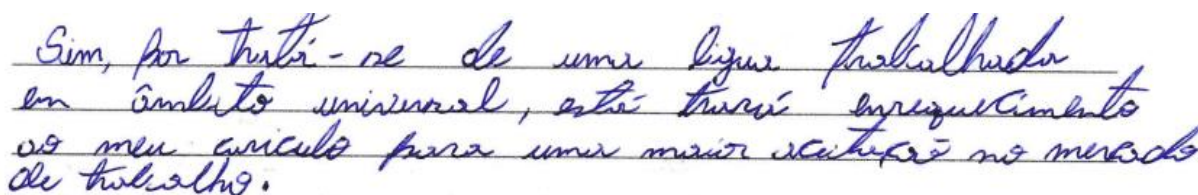 Sim, por tratá-se de uma ligua trabalhada
em âmbito universal, está trará enrequecimento
ao meu curiculo para uma maior aceitação no mercado
de trabalho.